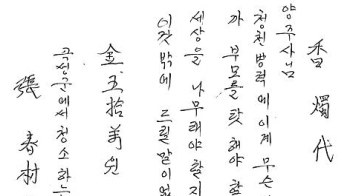 香燭代
양주사님
청천벽력에 이게 무슨
까 부모를 탓해야 할
세상을 나무래야 할지
이것밖에 드릴말이 없
金五拾萬원
곡성군에서 청소하는
張春村